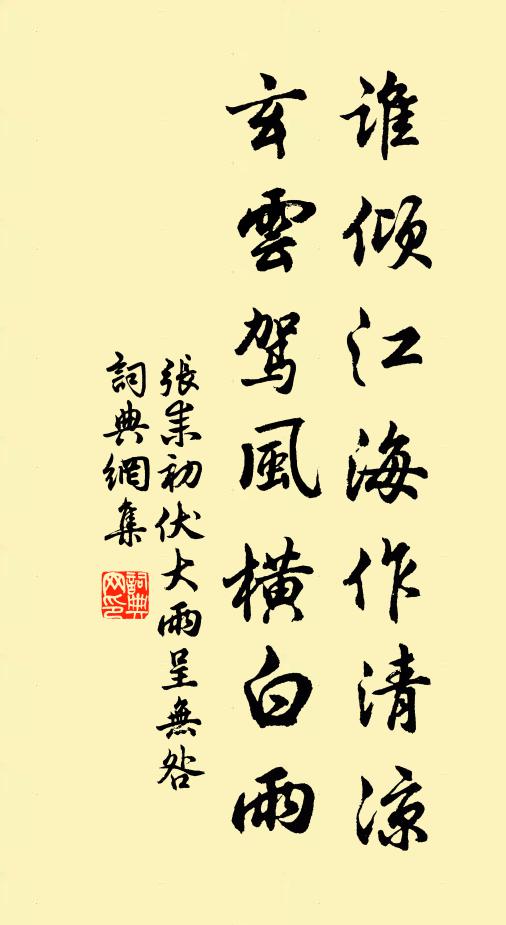 誰傾江海作清涼
玄雲駕風橫白雨
張耒初伏大雨呈無咎
詞典網集
詞典
网印